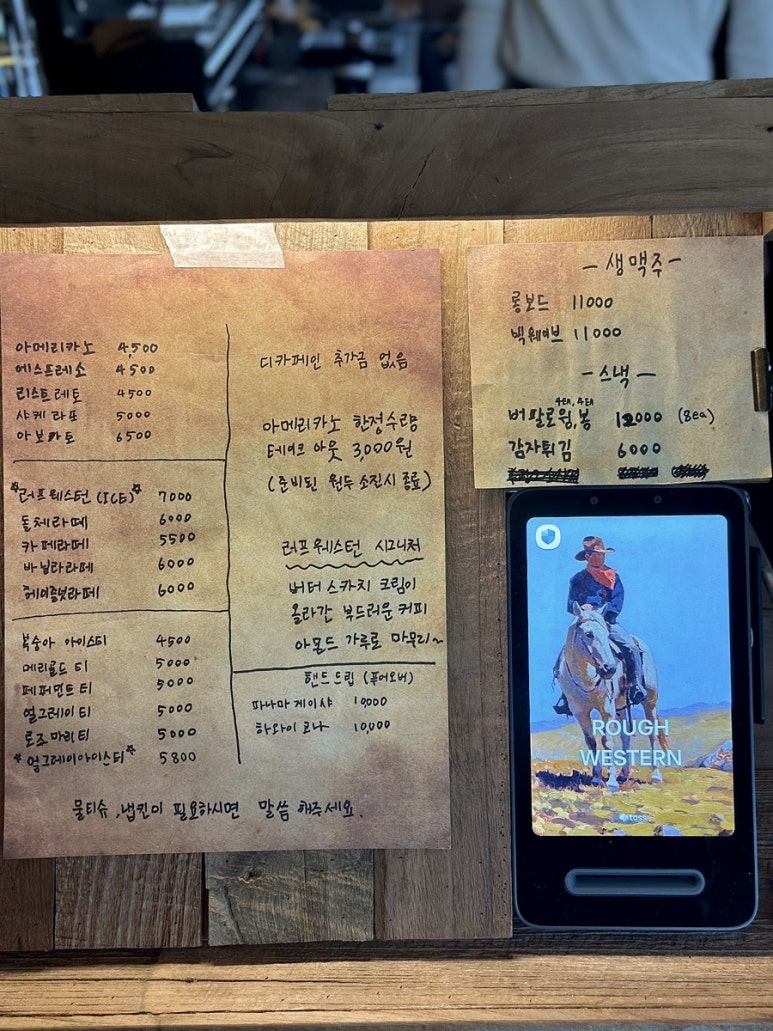 아메리카노 4,500
에스프레소 4500
리스트레토 4500
샤케라또 5000
아보카토 6500
☆러프웨스턴 (ICE)☆ 7000
돌체라떼 6000
카페라떼 5500
바닐라라떼 6000
헤이즐넛라떼 6000
복숭아 아이스티 4500
메리골드 티 5000
페퍼민트 티 5000
얼그레이 티 5000
로즈마리 티 5000
☆얼그레이아이스티☆ 5800
디카페인 추가금 없음
아메리카노 한정수량
테이크 아웃 3,000원
(준비된 원두 소진시 종료)
러프웨스턴 시그니처
버터 스카치 크림이
올라간 부드러운 커피
아몬드 가루로 마무리~
핸드드립 (푸어오버)
파나마 게이샤 10,000
하와이 코나 10,000
물티슈, 냅킨이 필요하시면 말씀해주세요.
- 생맥주 -
롱보드 11000
빅웨이브 11000
- 스낵 -
4EA, 4EA
버팔로윙,봉 12000 (8ea)
감자튀김 6000
ROUGH
WESTERN
toss